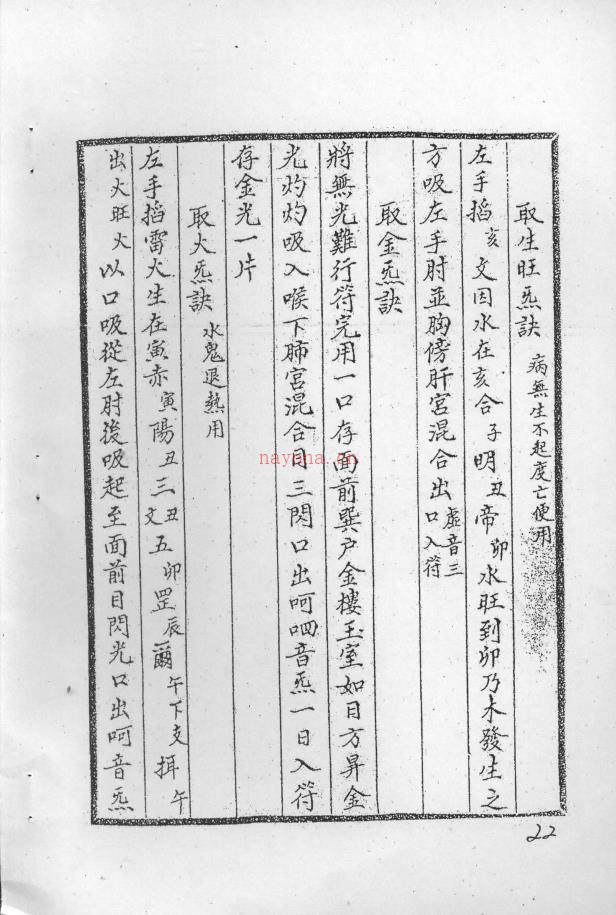 取生旺炁訣 病無生不起度亡便用
左手掐亥文因水在亥合子明丑帝卯水旺到卯乃木發生之
方吸左手肘並胸傍肝宮混合出虛音三口入符
取金炁訣
將無光難行符完用一口存面前巽户金樓玉室如日方昇金
光灼灼吸入喉下肺宮混合目三閃口出呵呬音炁一日入符
存金光一片
取火炁訣 水鬼退熱用
左手掐雷火生在寅赤寅陽丑三丑文五卯罡辰爾午下支挕午
出火旺火以口吸從左肘後吸起至面前目閃光口出呵音炁
22
nayona.cn